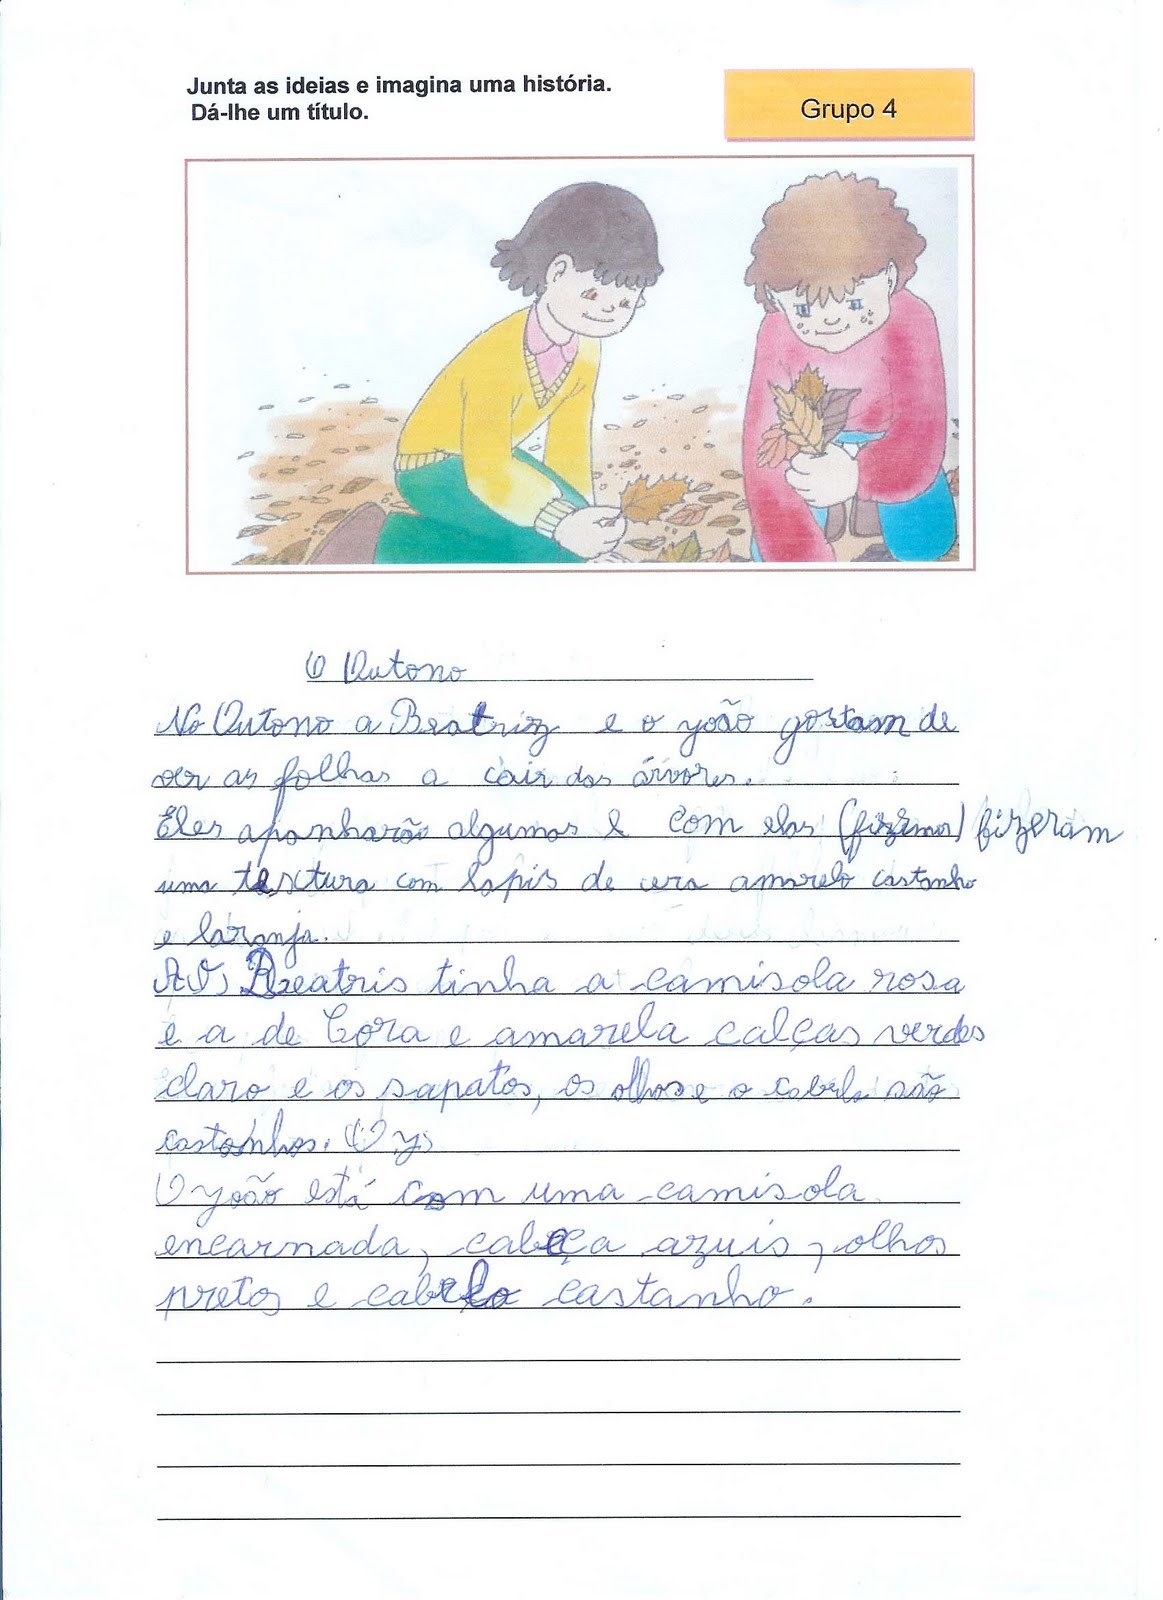 Junta as ideias e imagina uma história.
Dá-lhe um título.
Grupo 4
O Outono
No Outono a Beatriz e o João gostam de
ver as folhas a cair das árvores.
Eles apanharão algumas e com elas (fizemos) fizeram
uma textura com lapis de cera amarelo castanho
e laranja.
A Beatris tinha a camisola rosa
e a de fora e amarela calças verdes
claro e os sapatos, os olhos e o cabelo são
castanhos. O J
O João está com uma camisola
encarnada, cabeça azuis, olhos
pretos e cabelo castanho.